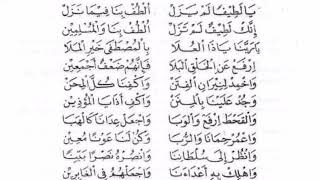 يَا لَطِيفًا لَمْ يَزَلْ اُلْطُفْ بِنَا فِيمَا نَزَلْ
إِنَّكَ لَطِيفٌ لَمْ تَزَلْ اُلْطُفْ بِنَا وَالْمُسْلِمِينْ
يَارَبَّنَا يَاذَا الْعُلَا بِالْمُصْطَفَى خَيْرِ الْمَلَا
اِرْفَعْ عَنِ الْخَلْقِ الْبَلَا فَإِنَّهُمْ ضَعْفٌ أَجْمَعِينْ
وَاخْمِدْ لِنِيرَانِ الْفِتَنْ وَاكْفِنَا كُلَّ الْمِحَنْ
وَجُدْ عَلَيْنَا بِالْمِنَنْ وَاكْفِ أَذَابَ الْمُؤْذِيِينْ
وَالْقَحْطَ اِرْفَعْ وَالْوَبَا وَاجْعَلْ عِدَانَا كَالْهَبَا
وَاعْمُرْ حِمَانَا وَالرُّبَا وَكُنْ لَنَا عَوْنًا مُعِينْ
وَانْظُرْ إِلَى سُلْطَانِنَا وَانْصُرْهُ نَصْرًا بَيِّنَا
وَاهْلِكْ بِهِ أَعْدَاءَنَا وَاجْعَلْهُمُ فِي الْغَابِرِينْ